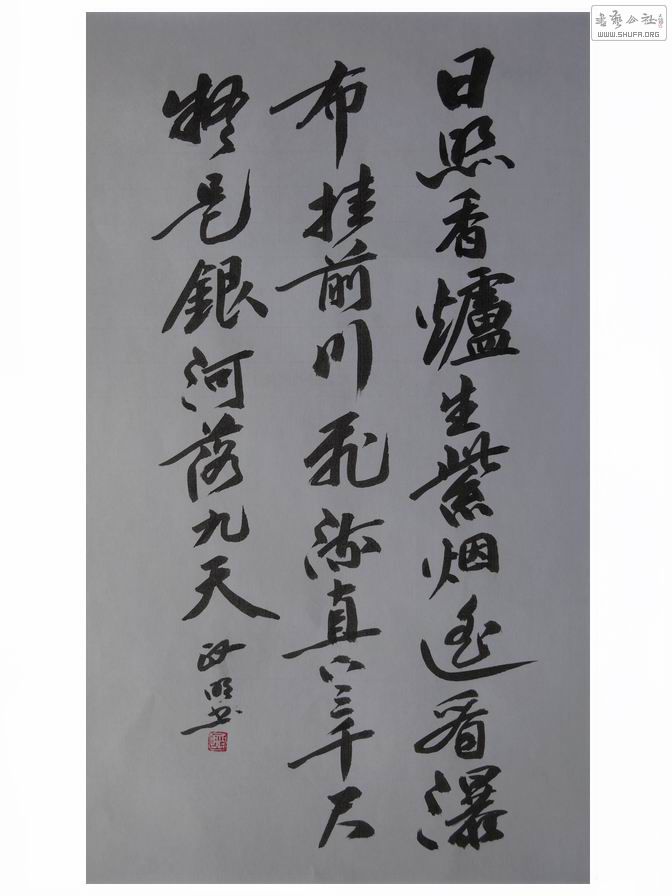 日照香爐生紫烟遥看瀑
布挂前川飛流直下三千尺
疑是銀河落九天
書藝公社
WWW.SHUFA.ORG